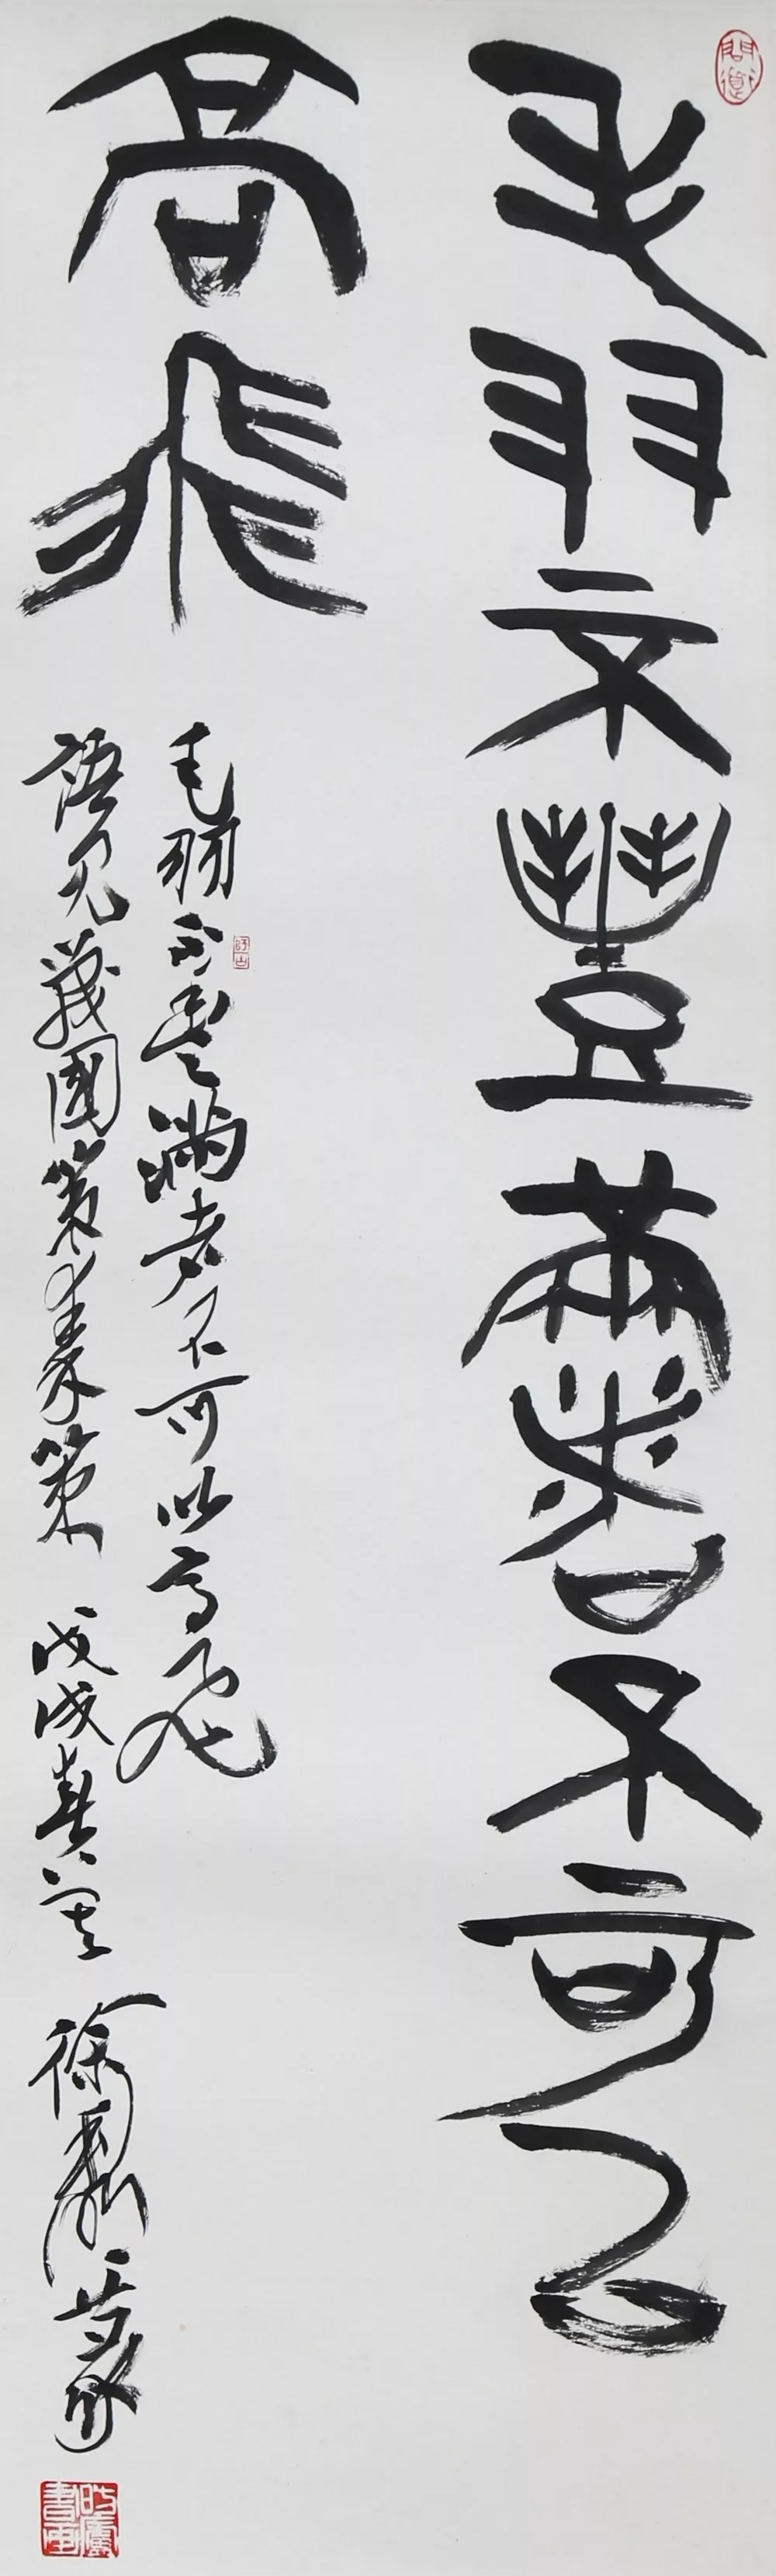 毛羽不豐滿者不可以
高飛
毛羽不豐滿者不可以高飛
語見戰國策秦策 戊戌春 徐